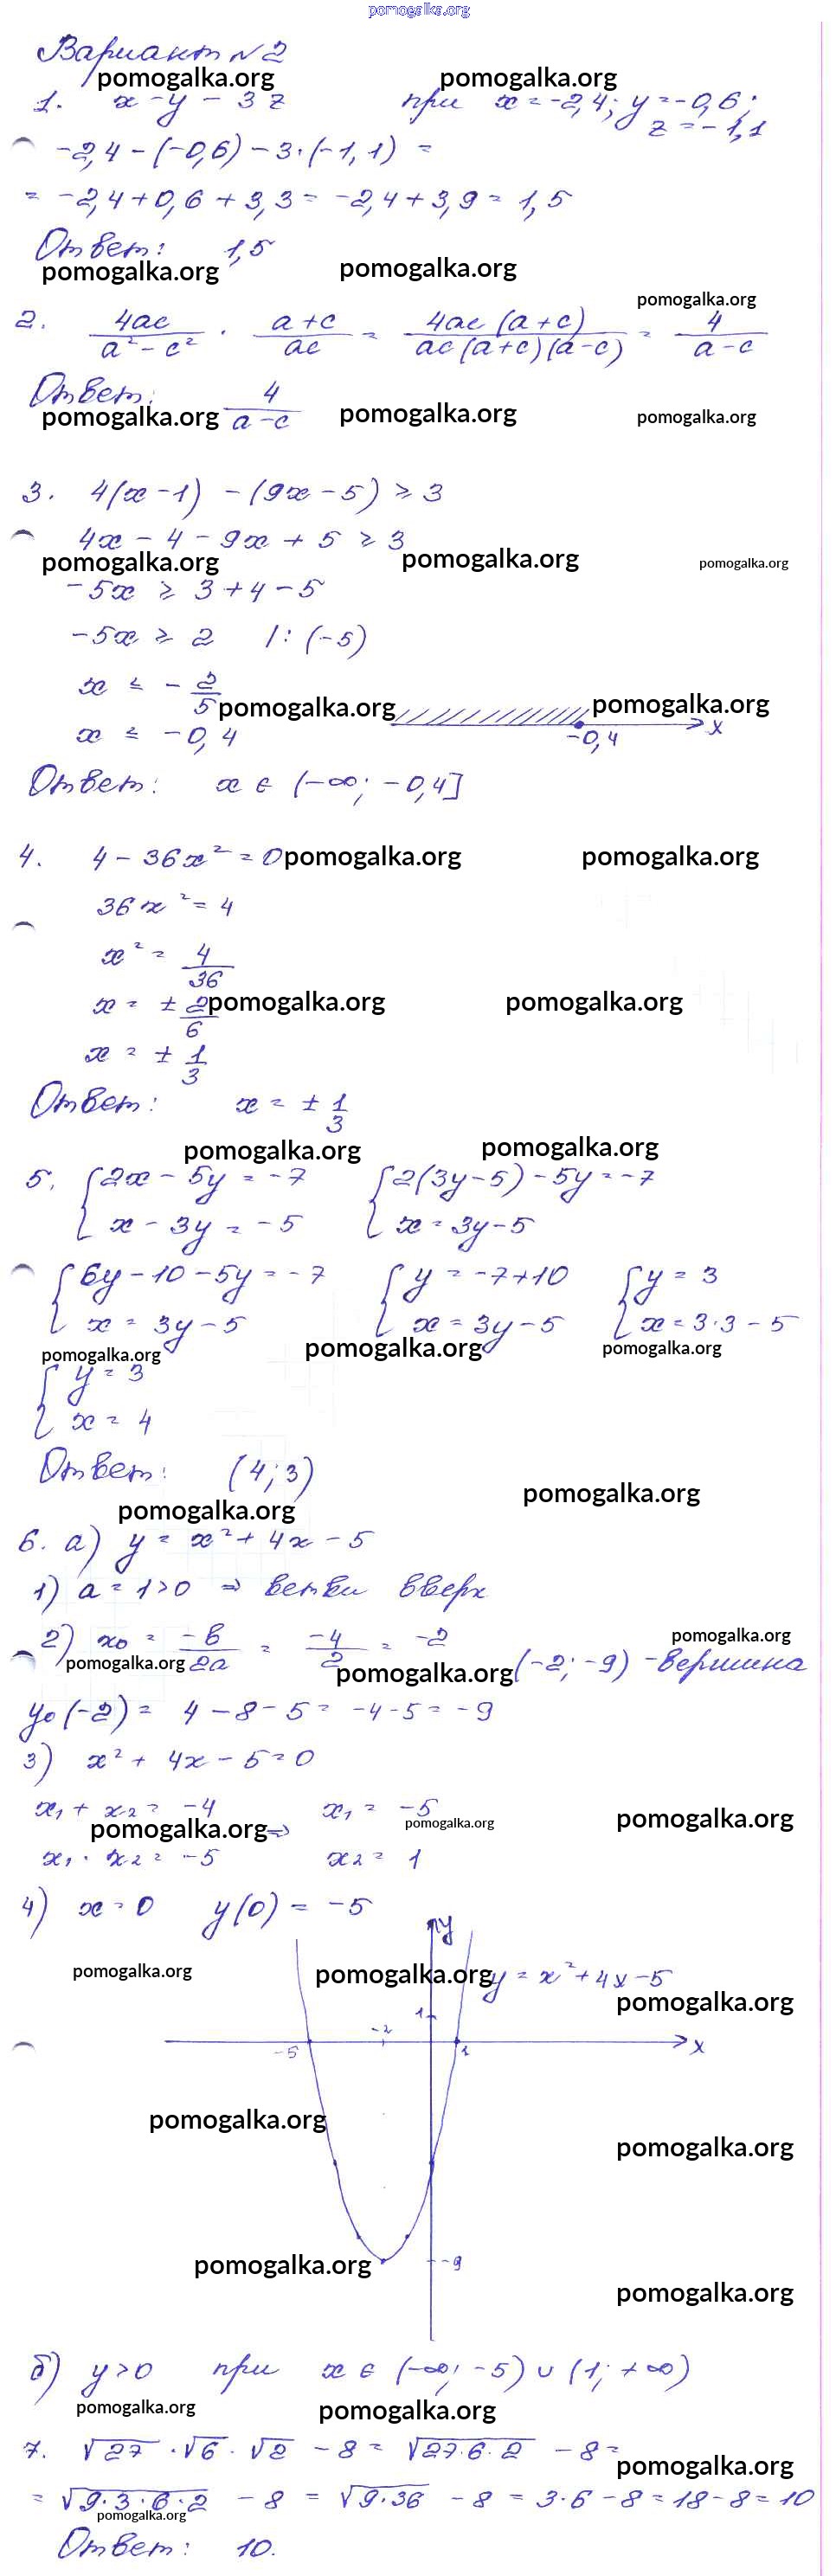 pomogalka.org
Вариант №2
pomogalka.org pomogalka.org
1. x - y - 3z при x = -2,4; y = -0,6;
z = -1,1
-2,4 - (-0,6) - 3·(-1,1) =
= -2,4 + 0,6 + 3,3 = -2,4 + 3,9 = 1,5
Ответ: 1,5
pomogalka.org pomogalka.org
pomogalka.org
2. 4ac/(a² - c²) · (a + c)/ac = 4ac(a + c)/(ac(a + c)(a - c)) = 4/(a - c)
Ответ: 4/(a - c)
pomogalka.org pomogalka.org pomogalka.org
3. 4(x - 1) - (9x - 5) ≥ 3
4x - 4 - 9x + 5 ≥ 3
pomogalka.org pomogalka.org pomogalka.org
-5x ≥ 3 + 4 - 5
-5x ≥ 2 |: (-5)
x ≤ - 2/5
pomogalka.org pomogalka.org
x ≤ -0,4 -0,4 x
Ответ: x ∈ (-∞; -0,4]
4. 4 - 36x² = 0 pomogalka.org pomogalka.org
36x² = 4
x² = 4/36
x = ± 2/6 pomogalka.org pomogalka.org
x = ± 1/3
Ответ: x = ± 1/3
pomogalka.org pomogalka.org
5. { 2x - 5y = -7 { 2(3y - 5) - 5y = -7
x - 3y = -5 x = 3y - 5
{ 6y - 10 - 5y = -7 { y = -7 + 10 { y = 3
x = 3y - 5 x = 3y - 5 x = 3·3 - 5
pomogalka.org pomogalka.org pomogalka.org
{ y = 3
x = 4
Ответ: (4; 3)
pomogalka.org pomogalka.org
6. а) y = x² + 4x - 5
1) a = 1 > 0 ⇒ ветви вверх
2) x₀ = -b/2a = -4/2 = -2
pomogalka.org
pomogalka.org pomogalka.org (-2; -9) - вершина
y₀(-2) = 4 - 8 - 5 = -4 - 5 = -9
3) x² + 4x - 5 = 0
x₁ + x₂ = -4 x₁ = -5
pomogalka.org ⇒ pomogalka.org pomogalka.org
x₁ · x₂ = -5 x₂ = 1
4) x = 0 y(0) = -5
y
pomogalka.org pomogalka.org y = x² + 4x - 5
pomogalka.org
1
-5 -2 1 x
pomogalka.org
pomogalka.org
pomogalka.org -9
pomogalka.org
б) y > 0 при x ∈ (-∞; -5) ∪ (1; +∞)
pomogalka.org pomogalka.org
7. √27 · √6 · √2 - 8 = √(27·6·2) - 8 =
pomogalka.org
= √(9·3·6·2) - 8 = √(9·36) - 8 = 3·6 - 8 = 18 - 8 = 10
pomogalka.org
Ответ: 10.